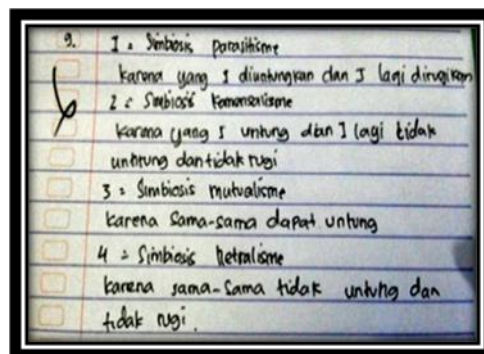 9. I = Simbiosis parasitisme
karena yang 1 diuntungkan dan 1 lagi dirugikan
2 = Simbiosis komensalisme
karena yang 1 untung dan 1 lagi tidak
untung dan tidak rugi
3 = Simbiosis mutualisme
karena sama-sama dapat untung
4 = Simbiosis netralisme
karena sama-sama tidak untung dan
tidak rugi.